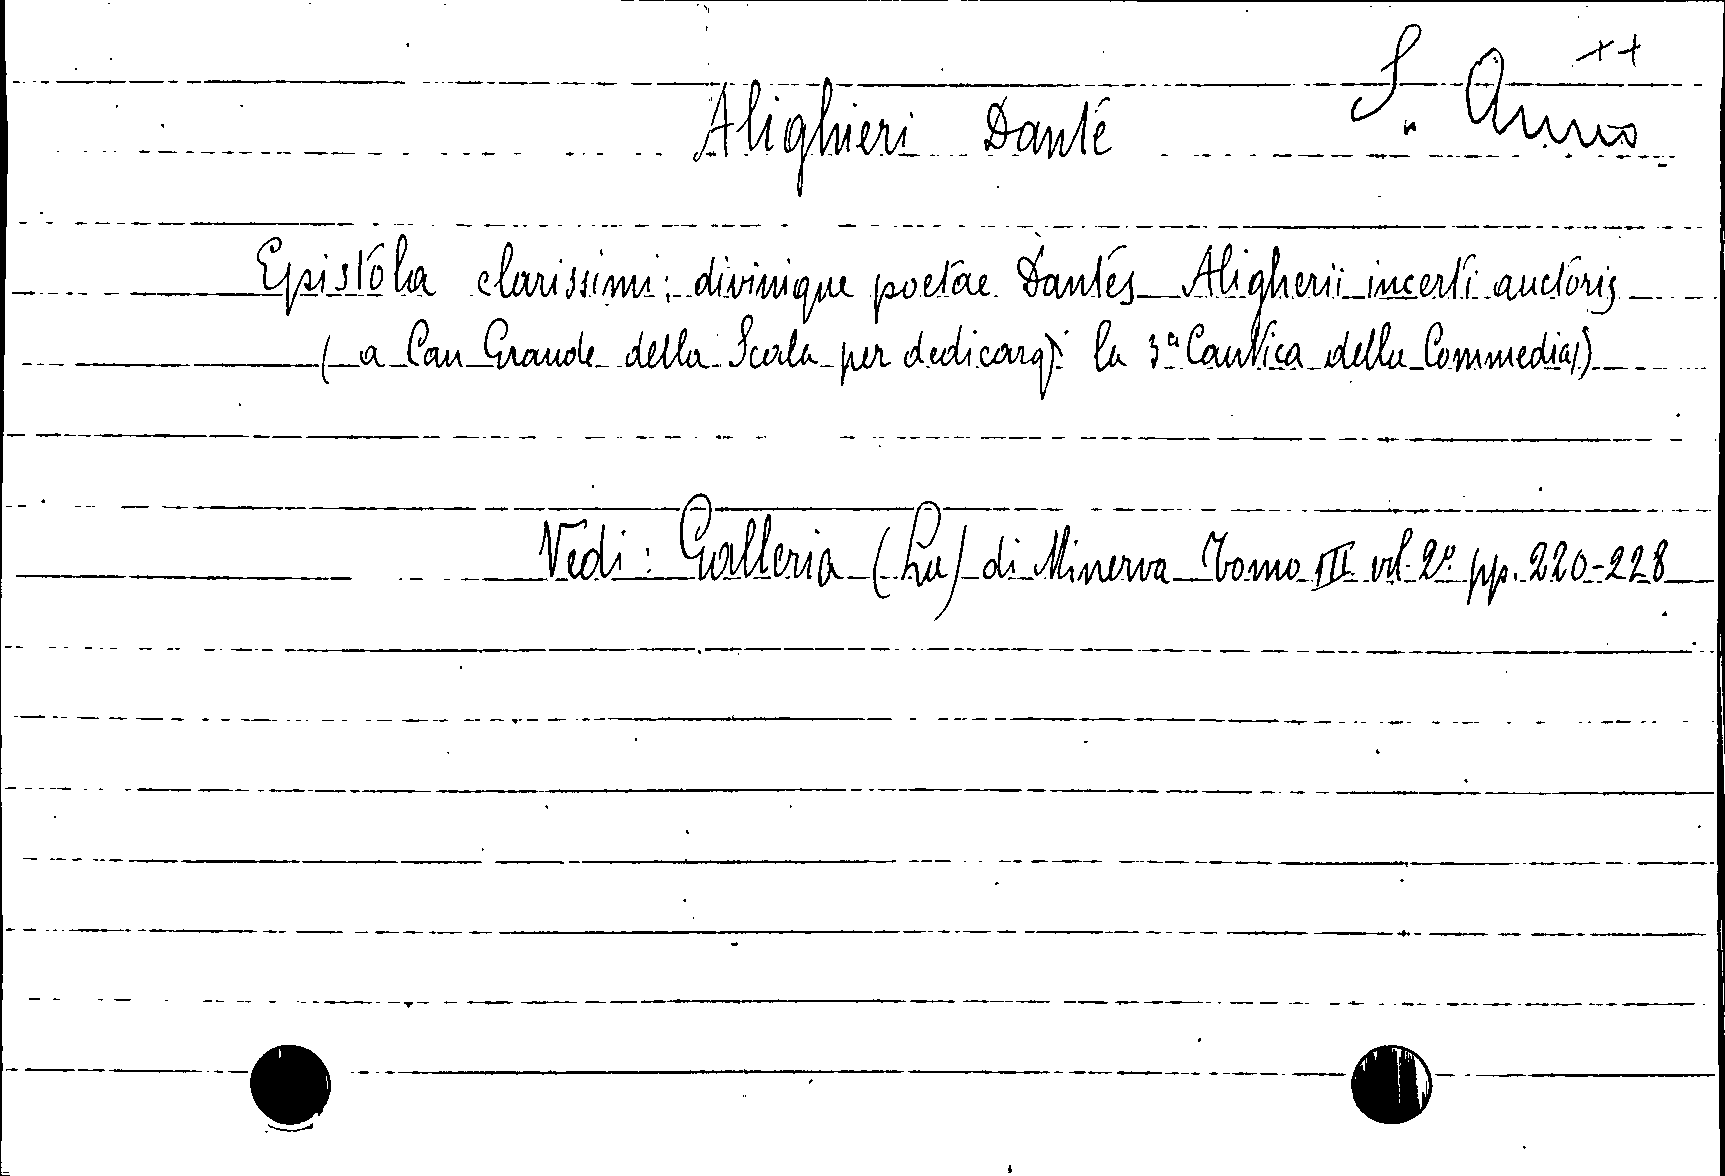 S. Anno ++
Alighieri Dante
Epistola clarissimi; divinique poetae Dantes Aligherii incerti auctoris
( a Can Grande della Scala per dedicargli la 3ª Cantica della Commedia))
Vedi: Galleria (La) di Minerva Tomo III vol. 2º pp. 220-228